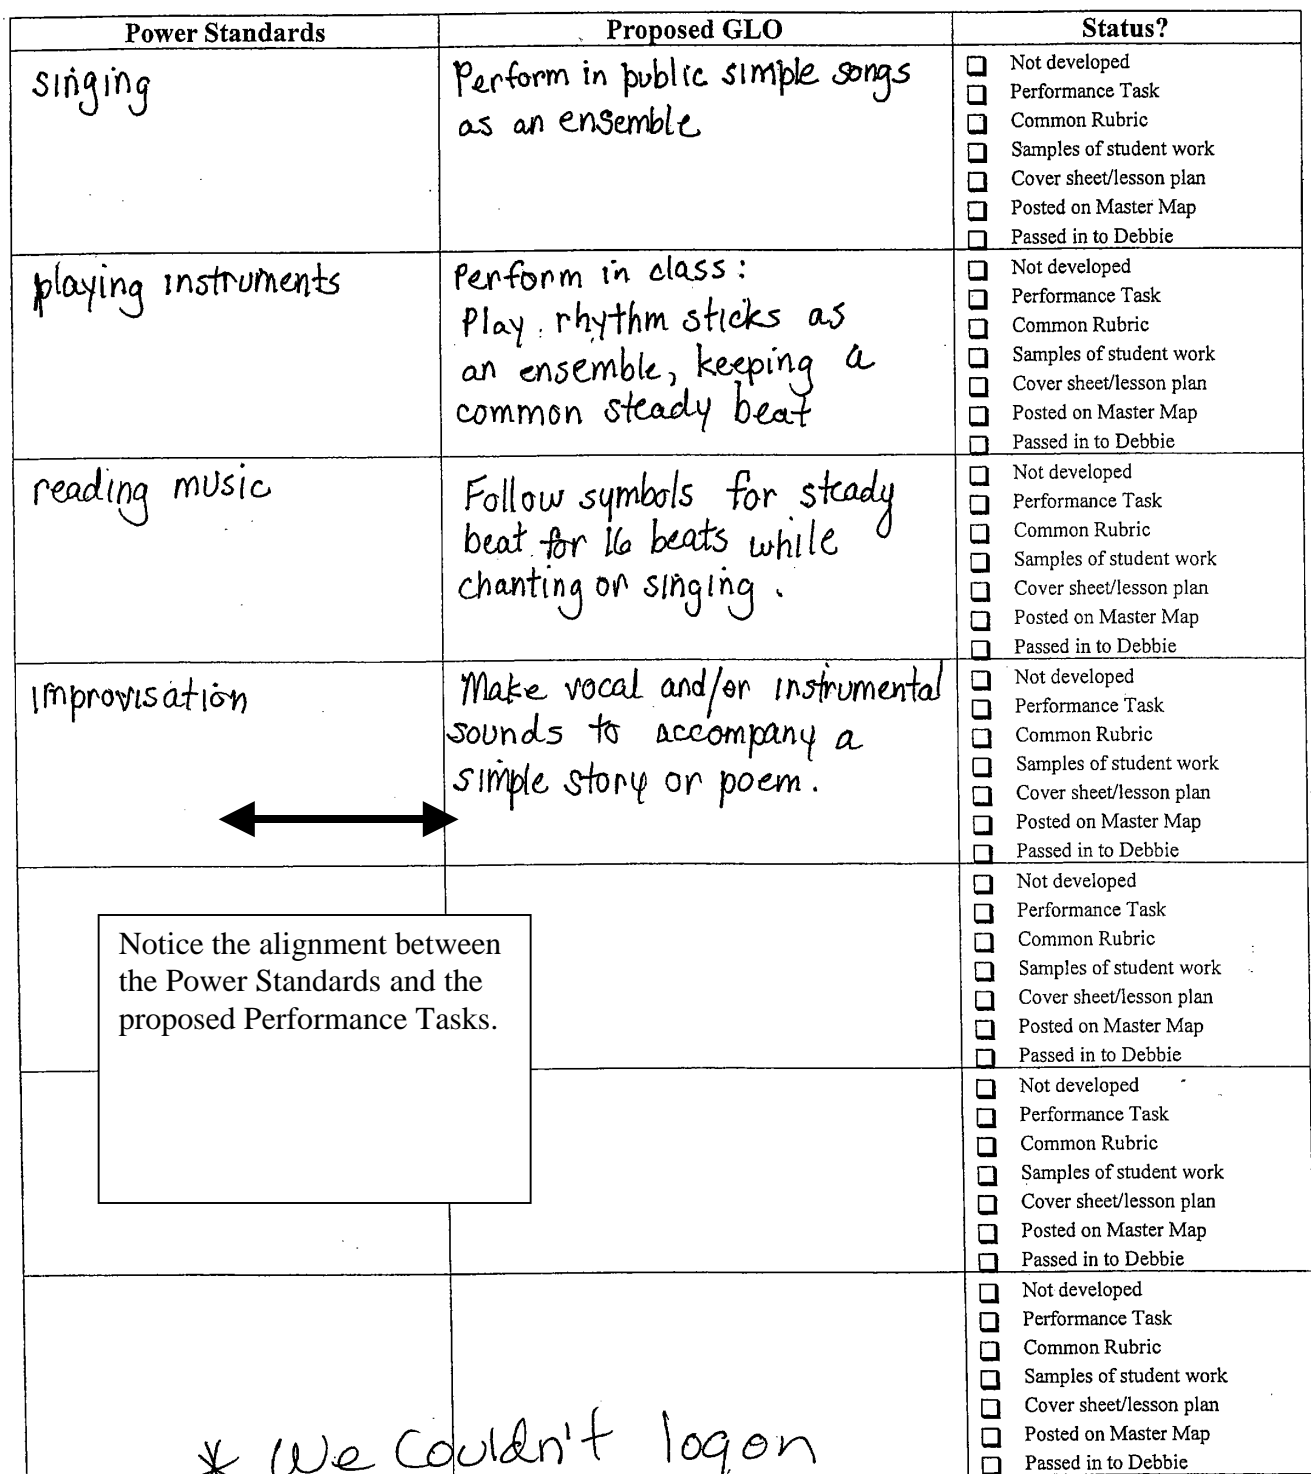 Power Standards
Proposed GLO
Status?
singing
Perform in public simple songs
as an ensemble
Not developed
Performance Task
Common Rubric
Samples of student work
Cover sheet/lesson plan
Posted on Master Map
Passed in to Debbie
playing instruments
Perform in class:
Play rhythm sticks as
an ensemble, keeping a
common steady beat
Not developed
Performance Task
Common Rubric
Samples of student work
Cover sheet/lesson plan
Posted on Master Map
Passed in to Debbie
reading music
Follow symbols for steady
beat for 16 beats while
chanting or singing.
Not developed
Performance Task
Common Rubric
Samples of student work
Cover sheet/lesson plan
Posted on Master Map
Passed in to Debbie
improvisation
Make vocal and/or instrumental
sounds to accompany a
simple story or poem.
Not developed
Performance Task
Common Rubric
Samples of student work
Cover sheet/lesson plan
Posted on Master Map
Passed in to Debbie
Notice the alignment between
the Power Standards and the
proposed Performance Tasks.
Not developed
Performance Task
Common Rubric
Samples of student work
Cover sheet/lesson plan
Posted on Master Map
Passed in to Debbie
Not developed
Performance Task
Common Rubric
Samples of student work
Cover sheet/lesson plan
Posted on Master Map
Passed in to Debbie
Not developed
Performance Task
Common Rubric
Samples of student work
Cover sheet/lesson plan
Posted on Master Map
Passed in to Debbie
* We couldn't logon